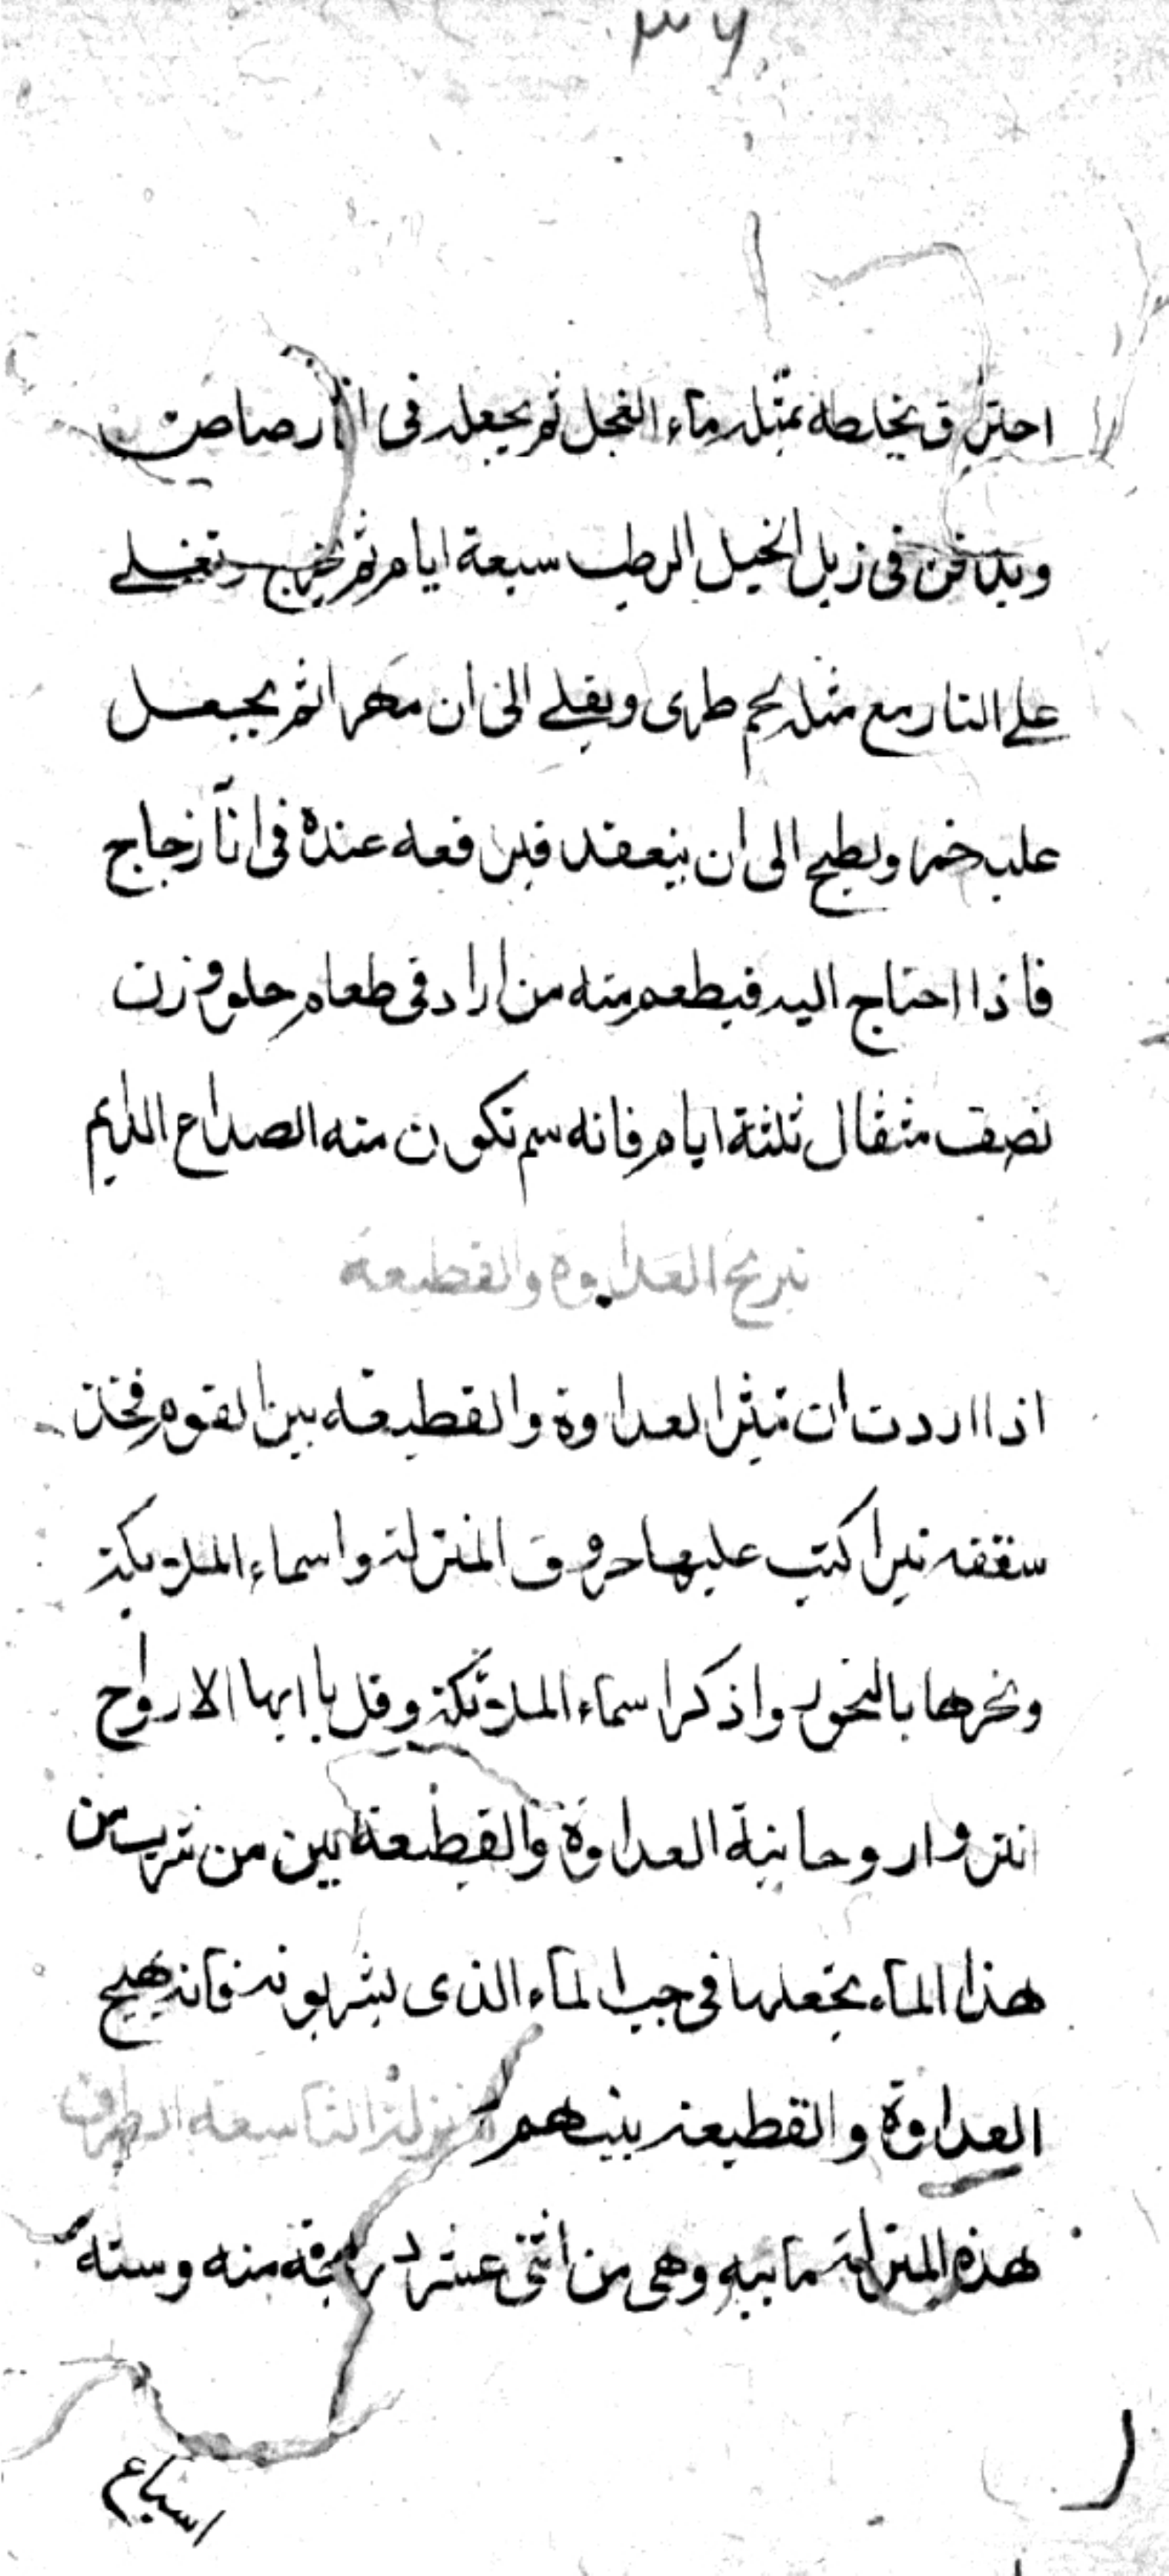 ٣٦
احترق يخلطه بمثله ماء الفجل ثم يجعله فى انآ رصاص
ويدفن فى زبل الخيل الرطب سبعة ايام ثم يخرج وتغلے
علے النار مع مثله لحم طرى ويقلے الى ان مهرا ثم يجعل
عليه خمرا ويطبخ الى ان ينعقد فيرفعه عنده فى انآ زجاج
فاذا احتاج اليه فيطعم منه من اراد فى طعام حلو وزن
نصف مثقال ثلثة ايام فانه سم تكون منه الصداع الدايم
نيرنج العداوة والقطيعة
اذا اردت ان تثير العداوة والقطيعة بين القوم فخذ
سقفه اكتب عليها حروف المنزلة واسماء الملايكة
وبخرها بالبخور واذكر اسماء الملائكة وقل يا ايها الارواح
انثروا روحانية العداوة والقطيعة بين من شرب من
هذا المآء تجعلها فى جب المآء الذى يشربونه فانه يهيج
العداوة والقطيعة بينهم المنزلة التاسعة الطرف
هذه المنزلة مآئيه وهى من اثنى عشر درجة منه وستة
اسباع